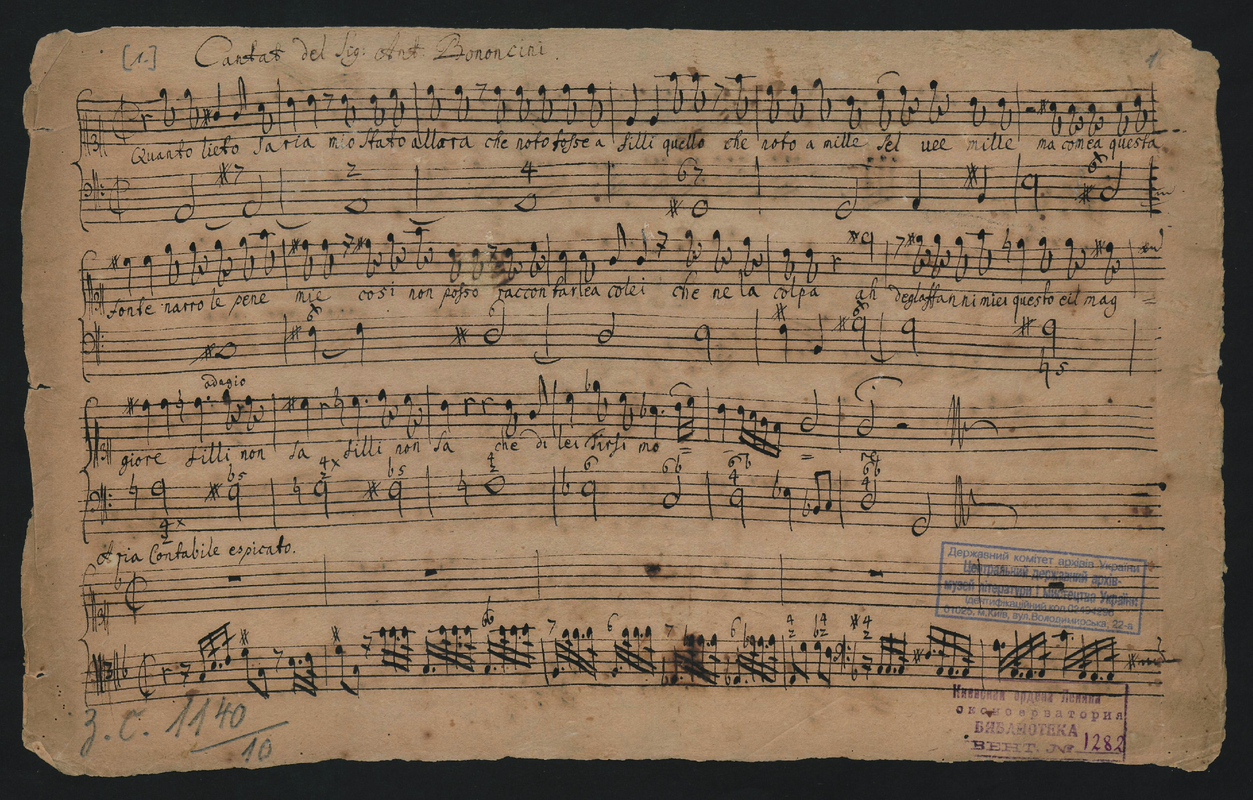 [1.] Cantat del Sig: Ant Bononcini.
Quanto lieto saria mio stato allara che noto fosse a filli quello che noto a mille sel vee mille ma come a questa
fonte narro le pene mie cosi non posso raccontarlea colei che ne la colpa ah deglaffanni miei questo eil mag
adagio
giore filli non sa filli non sa che di lei Tirsi mo
Aria Contabile e spicato.
Державний комітет архівів України
Центральний державний архів-
музей літератури і мистецтва України
Ідентифікаційний код
01025, м.Київ, вул.Володимирська, 22-а
З. С. 1140
10
Киевская ордена Ленина
консерватория
БИБЛИОТЕКА
ВЕНТ. № 1282